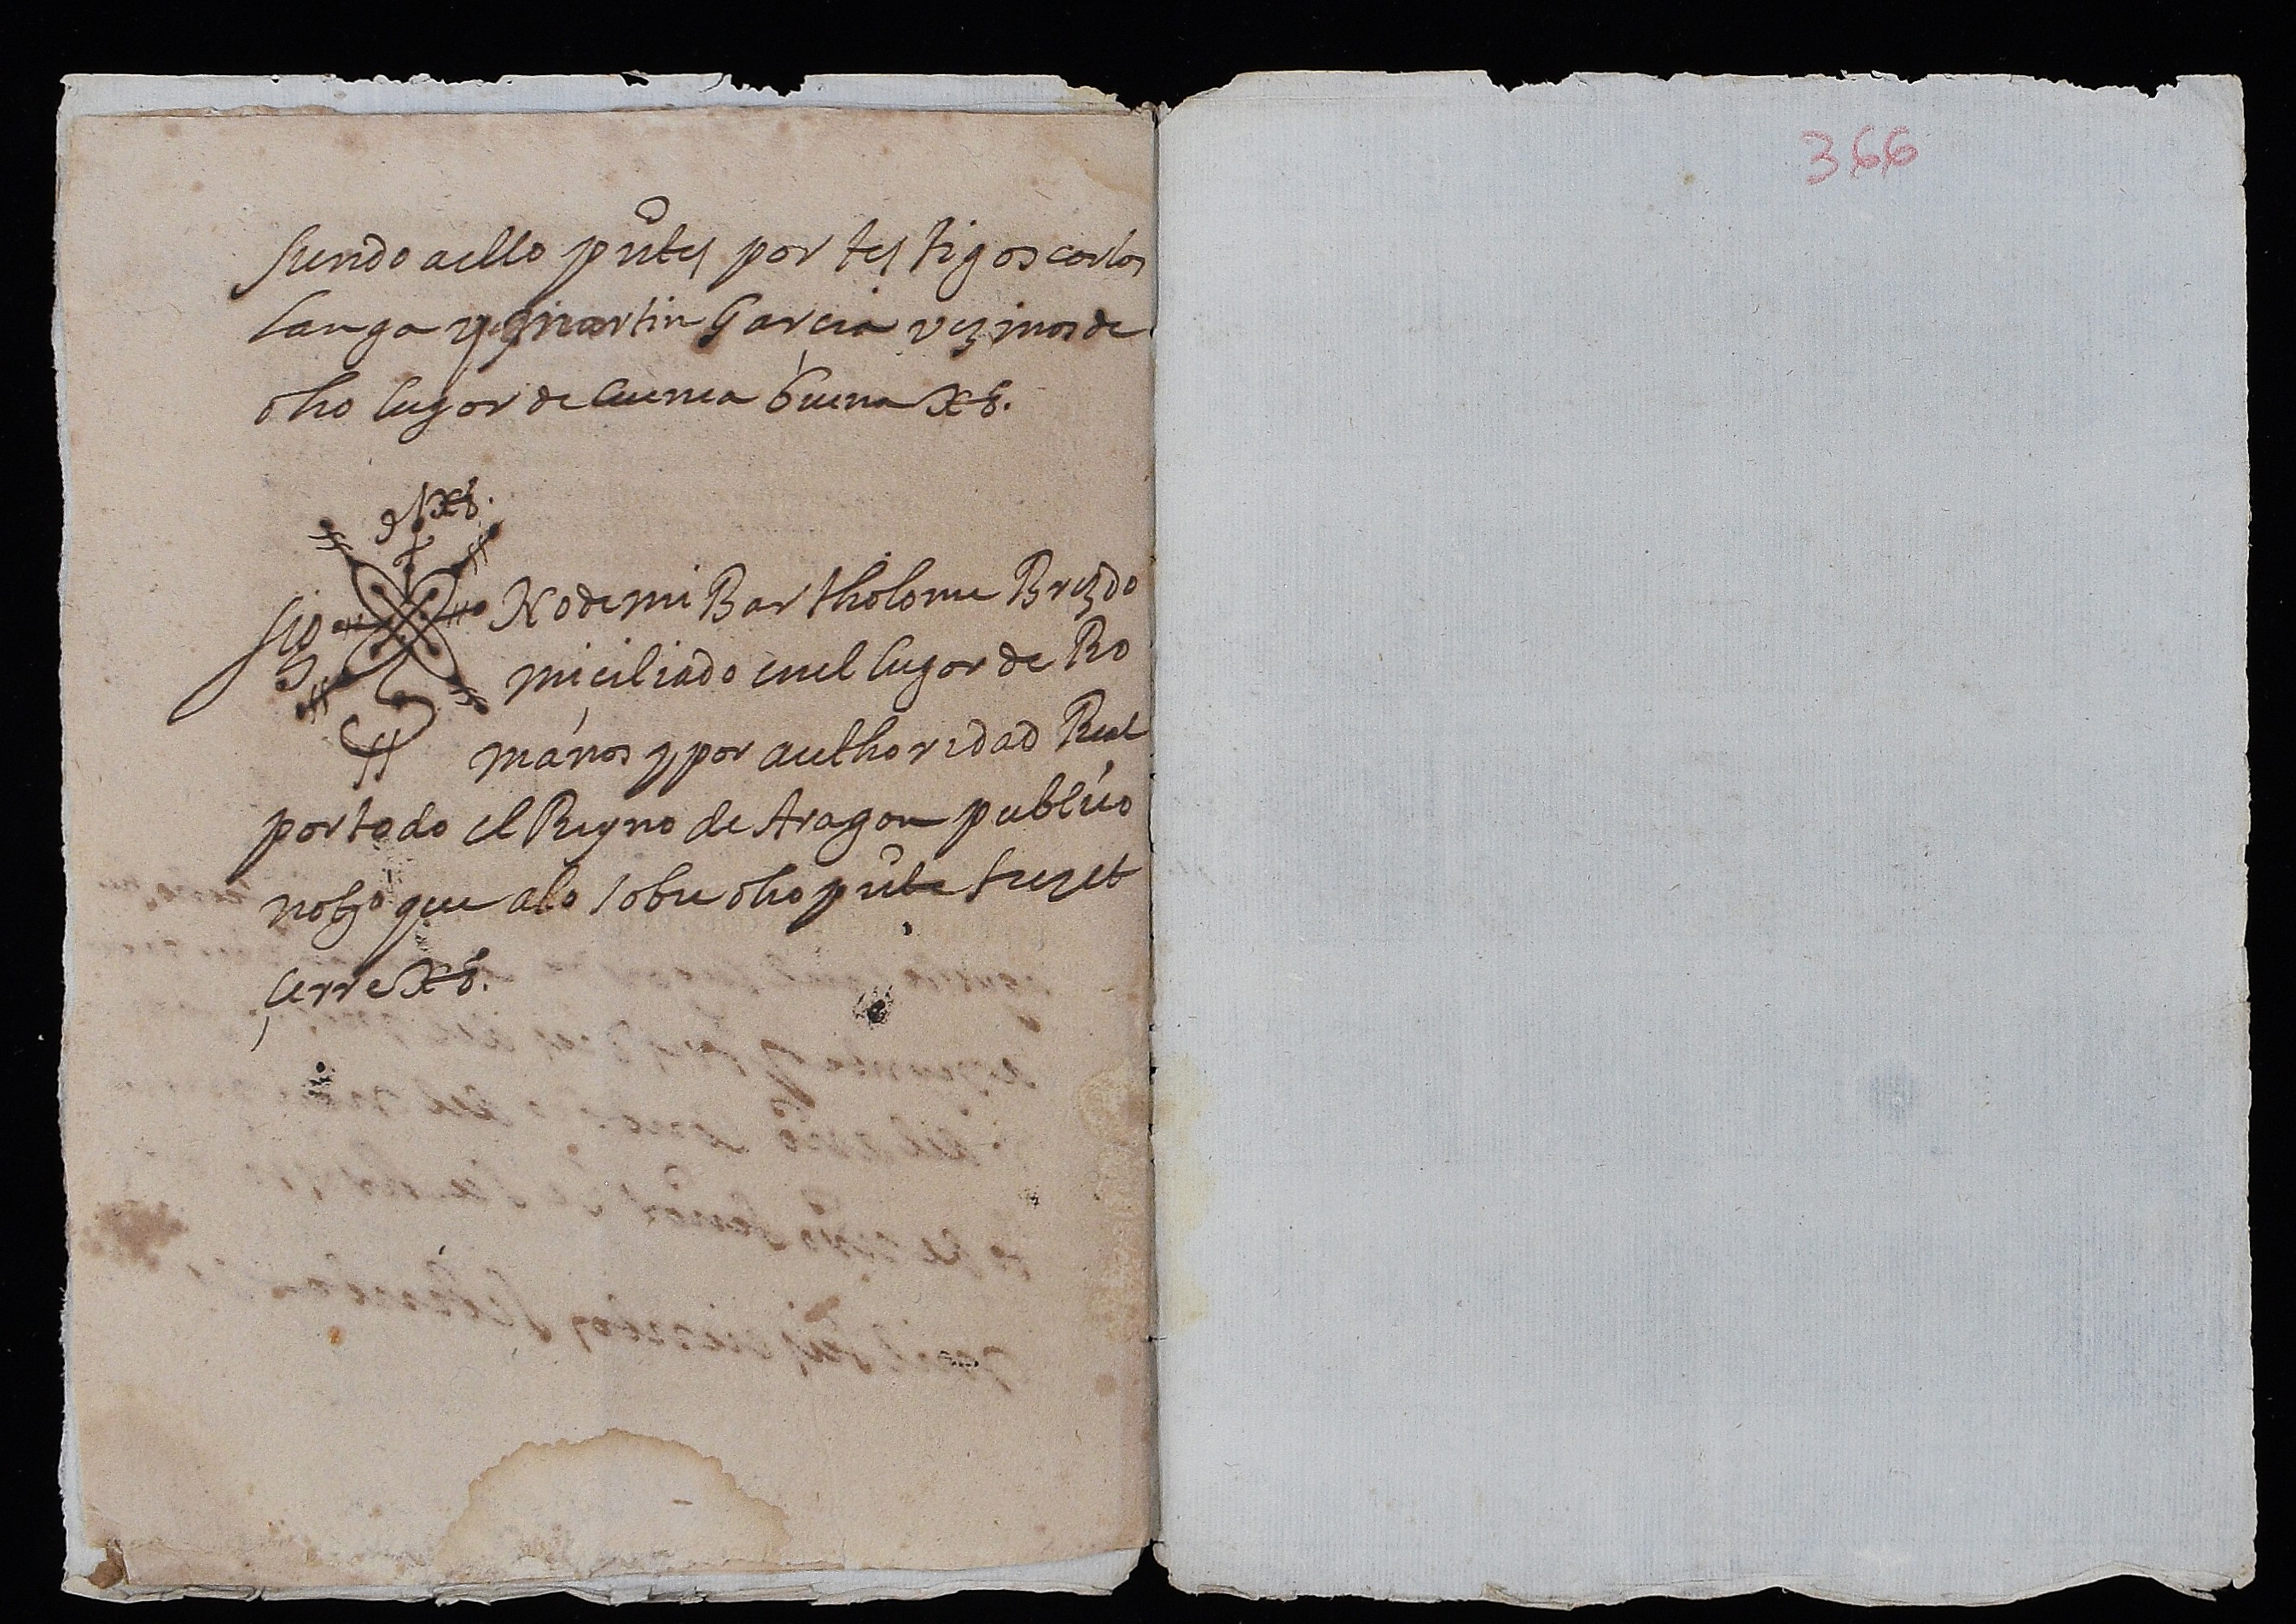 siendo a ello pñtes por testigos carlos
Langa y martin Garcia vezinos de
dho lugar de Cuenca buena Xδ.
Sig No de mi Bartholome Brez do
miciliado en el lugar de Ro
manos y por authoridad Real
por todo el Reyno de Aragon publico
notº que a lo sobre dho pñte fue et
cerre Xδ.
366